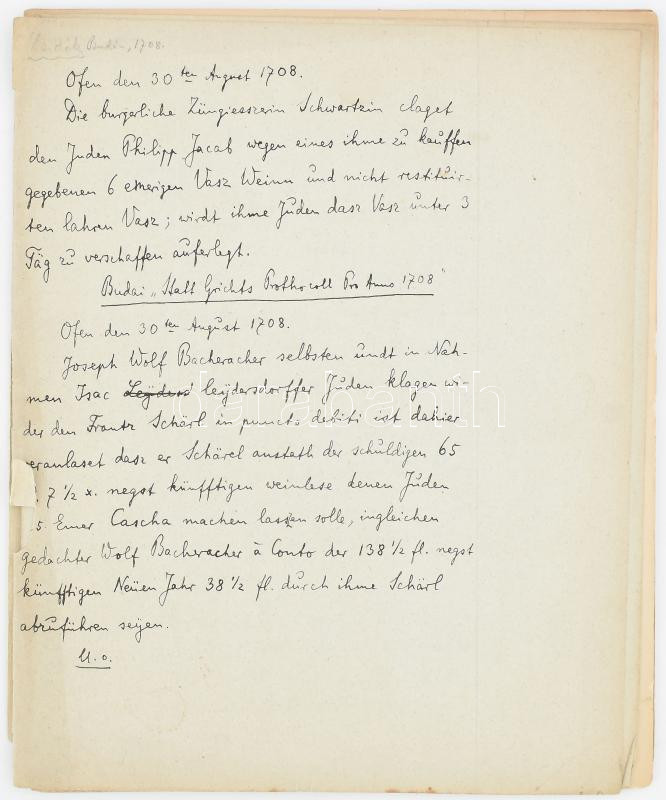 Budán, 1708.
Ofen den 30 ten August 1708.
Die burgerliche Züngiesserin Schwartzin claget
den Juden Philipp Jacob wegen eines ihme zu kauffen
gegebenen 6 emerigen Vasz Weinn und nicht restituir-
ten lahren Vasz; wirdt ihme Juden dasz Vasz unter 3
Täg zu verschaffen auferlegt.
Budai „Statt Grichts Prothocoll Pro Anno 1708"
Ofen den 30 ten August 1708.
Joseph Wolf Bacheracher selbsten undt in Nah-
men Isac leÿdersdorffer Juden klagen wi-
der den Frantz Schärl in puncto debiti ist dahier
veranlaset dasz er Schärel anstath der schuldigen 65
7 1/2 x. negst künfftigen weinlese denen Juden
5 Emer Cascha machen lassen solle, ingleichen
gedachter Wolf Bacheracher à Conto der 138 1/2 fl. negst
künfftigen Neüen Jahr 38 1/2 fl. durch ihme Schärl
abzuführen seÿen.
U. o.
darabanth